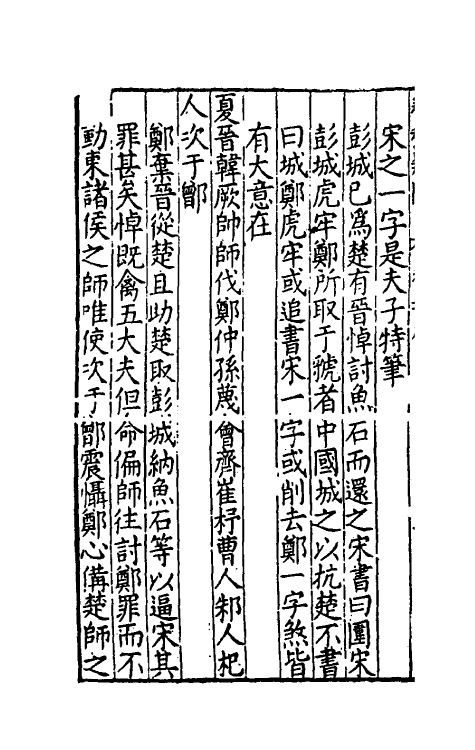 宋之一字是夫子特筆
彭城已為楚有晉悼討魚石而還之宋書曰圍宋
彭城虎牢鄭所取于虢者中國城之以抗楚不書
曰城鄭虎牢或追書宋一字或削去鄭一字煞皆
有大意在
夏晉韓厥帥師伐鄭仲孫蔑會齊崔杼曹人邾人杞
人次于鄫
鄭棄晉從楚且助楚取彭城納魚石等以逼宋其
罪甚矣悼既禽五大夫但命偏師往討鄭罪而不
動東諸侯之師唯使次于鄫震懾鄭心備楚師之